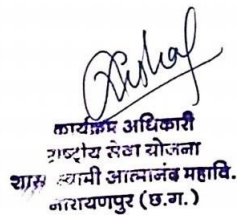 कार्यक्रम अधिकारी
राष्ट्रीय सेवा योजना
शास. स्वामी आत्मानंद महावि.
नारायणपुर (छ.ग.)